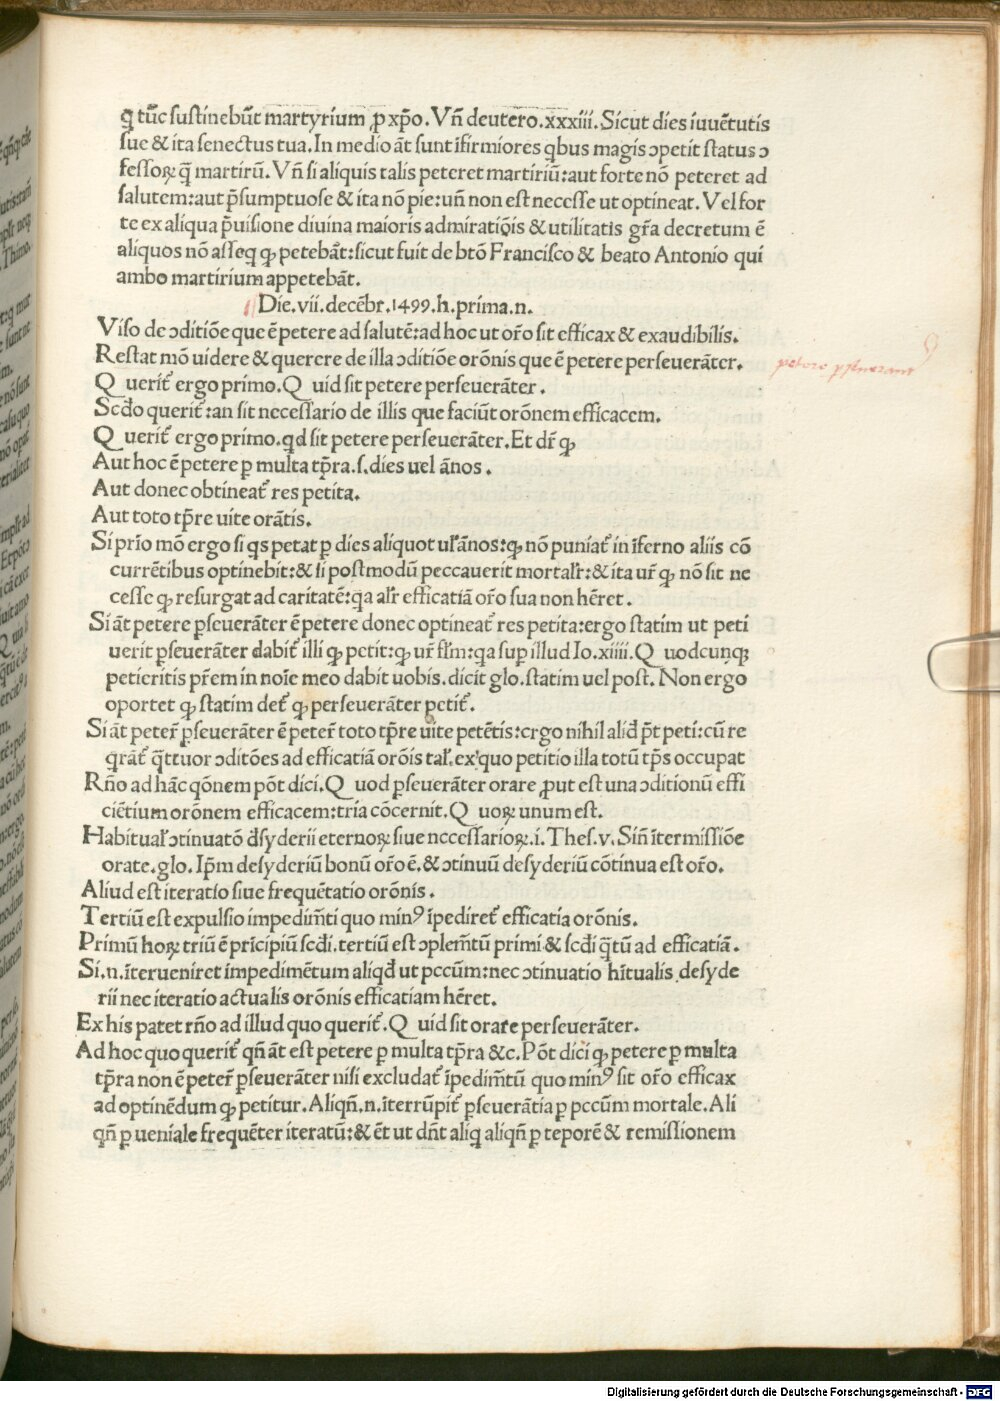 q̃ tūc sustinebūt martyrium ꝓ xp̄o. Vn̄ deutero.xxxiii. Sicut dies iuuētutis
sue & ita senectus tua. In medio āt sunt ifirmiores qbus magis ɔpetit status ɔ
fessoꝝ q̃ martirū. Vn̄ si aliquis talis peteret martiriū: aut forte nō peteret ad
salutem: aut p̄sumptuose & ita nō pie: un̄ non est necesse ut optineat. Vel for
te ex aliqua p̄uisione diuina maioris admiratiōis & utilitatis gr̄a decretum ē
aliquos nō asseq ꝙ petebāt: sicut fuit de bt̄o Francisco & beato Antonio qui
ambo martirium appetebāt.
Die.vii.decēbr.1499.h.prima.n.
Viso de ɔditiōe que ē petere ad salutē: ad hoc ut or̄o sit efficax & exaudibilis.
Restat mō uidere & querere de illa ɔditiōe orōnis que ē petere perseuerāter.
petere perseuerant
Q uerit̄ ergo primo. Q uid sit petere perseuerāter.
Scd̄o querit̄: an sit necessario de illis que faciūt orōnem efficacem.
Q uerit̄ ergo primo. qd sit petere perseuerāter. Et dr̄ ꝙ
Aut hoc ē petere ꝑ multa tp̄ra.s.dies uel ānos.
Aut donec obtineat̄ res petita.
Aut toto tp̄re uite orātis.
Si prīo mō ergo si qs petat ꝑ dies aliquot ul̄ ānos: ꝙ nō puniat̄ in īferno aliis cō
currētibus optinebit: & si postmodū peccauerit mortalr̄: & ita ur̄ ꝙ nō sit ne
cesse ꝙ resurgat ad caritatē: qa alr̄ efficatiā or̄o sua non hēret.
Si āt petere ꝑseuerāter ē petere donec optineat̄ res petita: ergo statim ut peti
uerit ꝑseuerāter dabit̄ illi ꝙ petit: ꝙ ur̄ fl̄m: qa sup illud Io.xiiii. Q uodcunqꝫ
petieritis pr̄em in noīe meo dabit uobis. dicit glo. statim uel post. Non ergo
oportet ꝙ statim det̄ ꝙ perseuerāter petit̄.
Si āt peter̄ ꝑseuerāter ē peter̄ toto tp̄re uite petētis: ergo nihil alid̄ p̄t peti: cū re
qrāt̄ q̄ttuor ɔditōes ad efficatiā orōis tal̄. ex quo petitio illa totū tp̄s occupat
Rn̄o ad hāc qōnem pōt dici. Q uod ꝑseuerāter orare ꝓut est una ɔditionū effi
ciētium orōnem efficacem: tria cōcernit. Q uoꝝ unum est.
Habitual̄ ɔtinuatō d̄syderii eternoꝝ siue necessarioꝝ. i. Thes.v. Sin̄ ītermissiōe
orate. glo. Ip̄m desyderiū bonū or̄o ē. & ɔtinuū desyderiū cōtinua est or̄o.
Aliud est iteratio siue frequētatio orōnis.
Tertiū est expulsio impedim̄ti quo minꝰ īpediret̄ efficatia orōnis.
Primū hoꝝ triū ē prīcipiū scd̄i. tertiū est ɔplem̄tū primi & scd̄i q̄tū ad efficatiā.
Si.n.īterueniret impedimētum aliqd̄ ut pccūm: nec ɔtinuatio hītualis desyde
rii nec iteratio actualis orōnis efficatiam hēret.
Ex his patet rn̄o ad illud quo querit̄. Q uid sit orare perseuerāter.
Ad hoc quo querit̄ qn̄ āt est petere ꝑ multa tp̄ra &c. Pōt dici ꝙ petere ꝑ multa
tp̄ra non ē peter̄ ꝑseuerāter nisi excludat̄ īpedim̄tū quo minꝰ sit or̄o efficax
ad optinēdum ꝙ petitur. Aliqn̄.n.īterrūpit̄ ꝑseuerātia ꝑ pccūm mortale. Ali
qn̄ ꝑ ueniale frequēter iteratū: & ēt ut dn̄t aliq aliqn̄ ꝑ teporē & remissionem
Digitalisierung gefördert durch die Deutsche Forschungsgemeinschaft - DFG